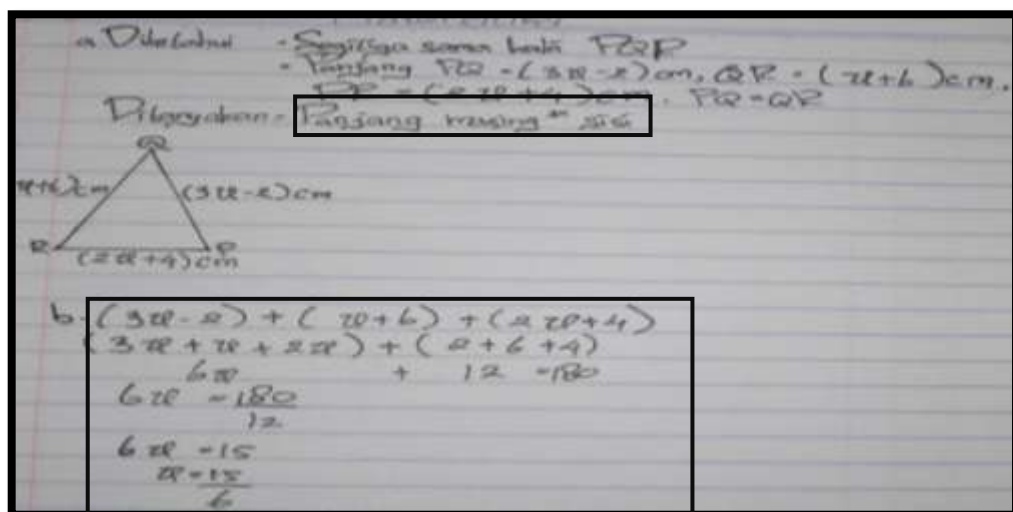 a. Diketahui - Segitiga sama kaki PQR
- Panjang PQ = (3x-2)cm, QR = (x+6)cm.
PR = (2x+4)cm. PQ=QR
Ditanyakan = Panjang masing" sisi
Q
x+6)cm (3x-2)cm
R P
(2x+4)cm
b. (3x-2) + (x+6) + (2x+4)
(3x + x + 2x) + (2+6+4)
6x + 12 = 180
6x = 180
12
6x = 15
x = 15
6